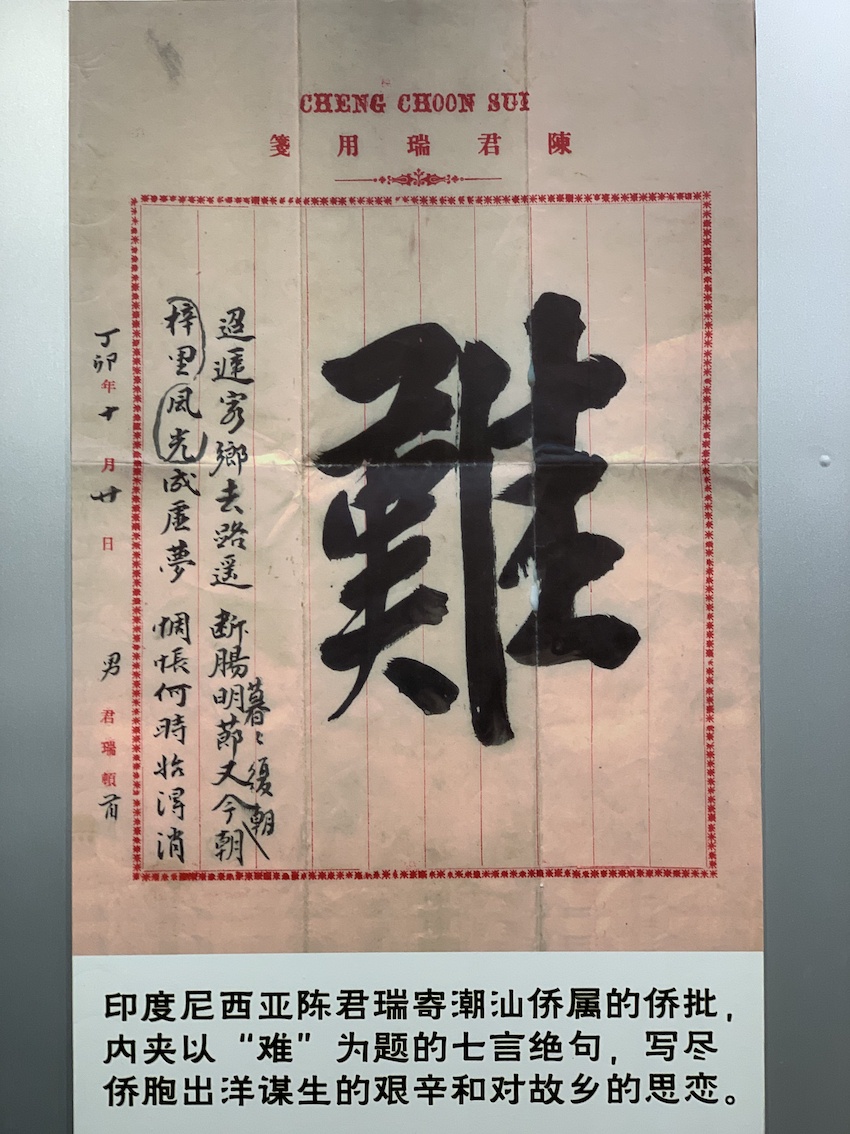 CHENG CHOON SUI
陳君瑞用箋
難
暮々復朝
迢遞客鄉去路遥 断腸明節又今朝
梓里風光成虛夢 惆悵何時始得消
丁卯年十月廿日 男君瑞頓首
印度尼西亚陈君瑞寄潮汕侨属的侨批，
内夹以“难”为题的七言绝句，写尽
侨胞出洋谋生的艰辛和对故乡的思恋。